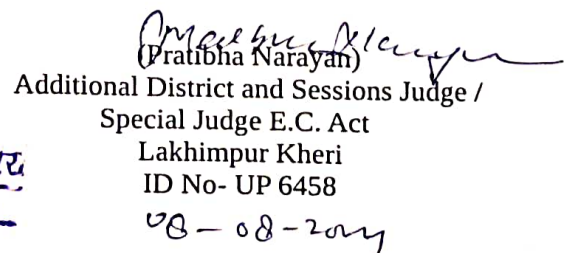 (Pratibha Narayan)
Additional District and Sessions Judge /
Special Judge E.C. Act
Lakhimpur Kheri
ID No- UP 6458
08-08-2024